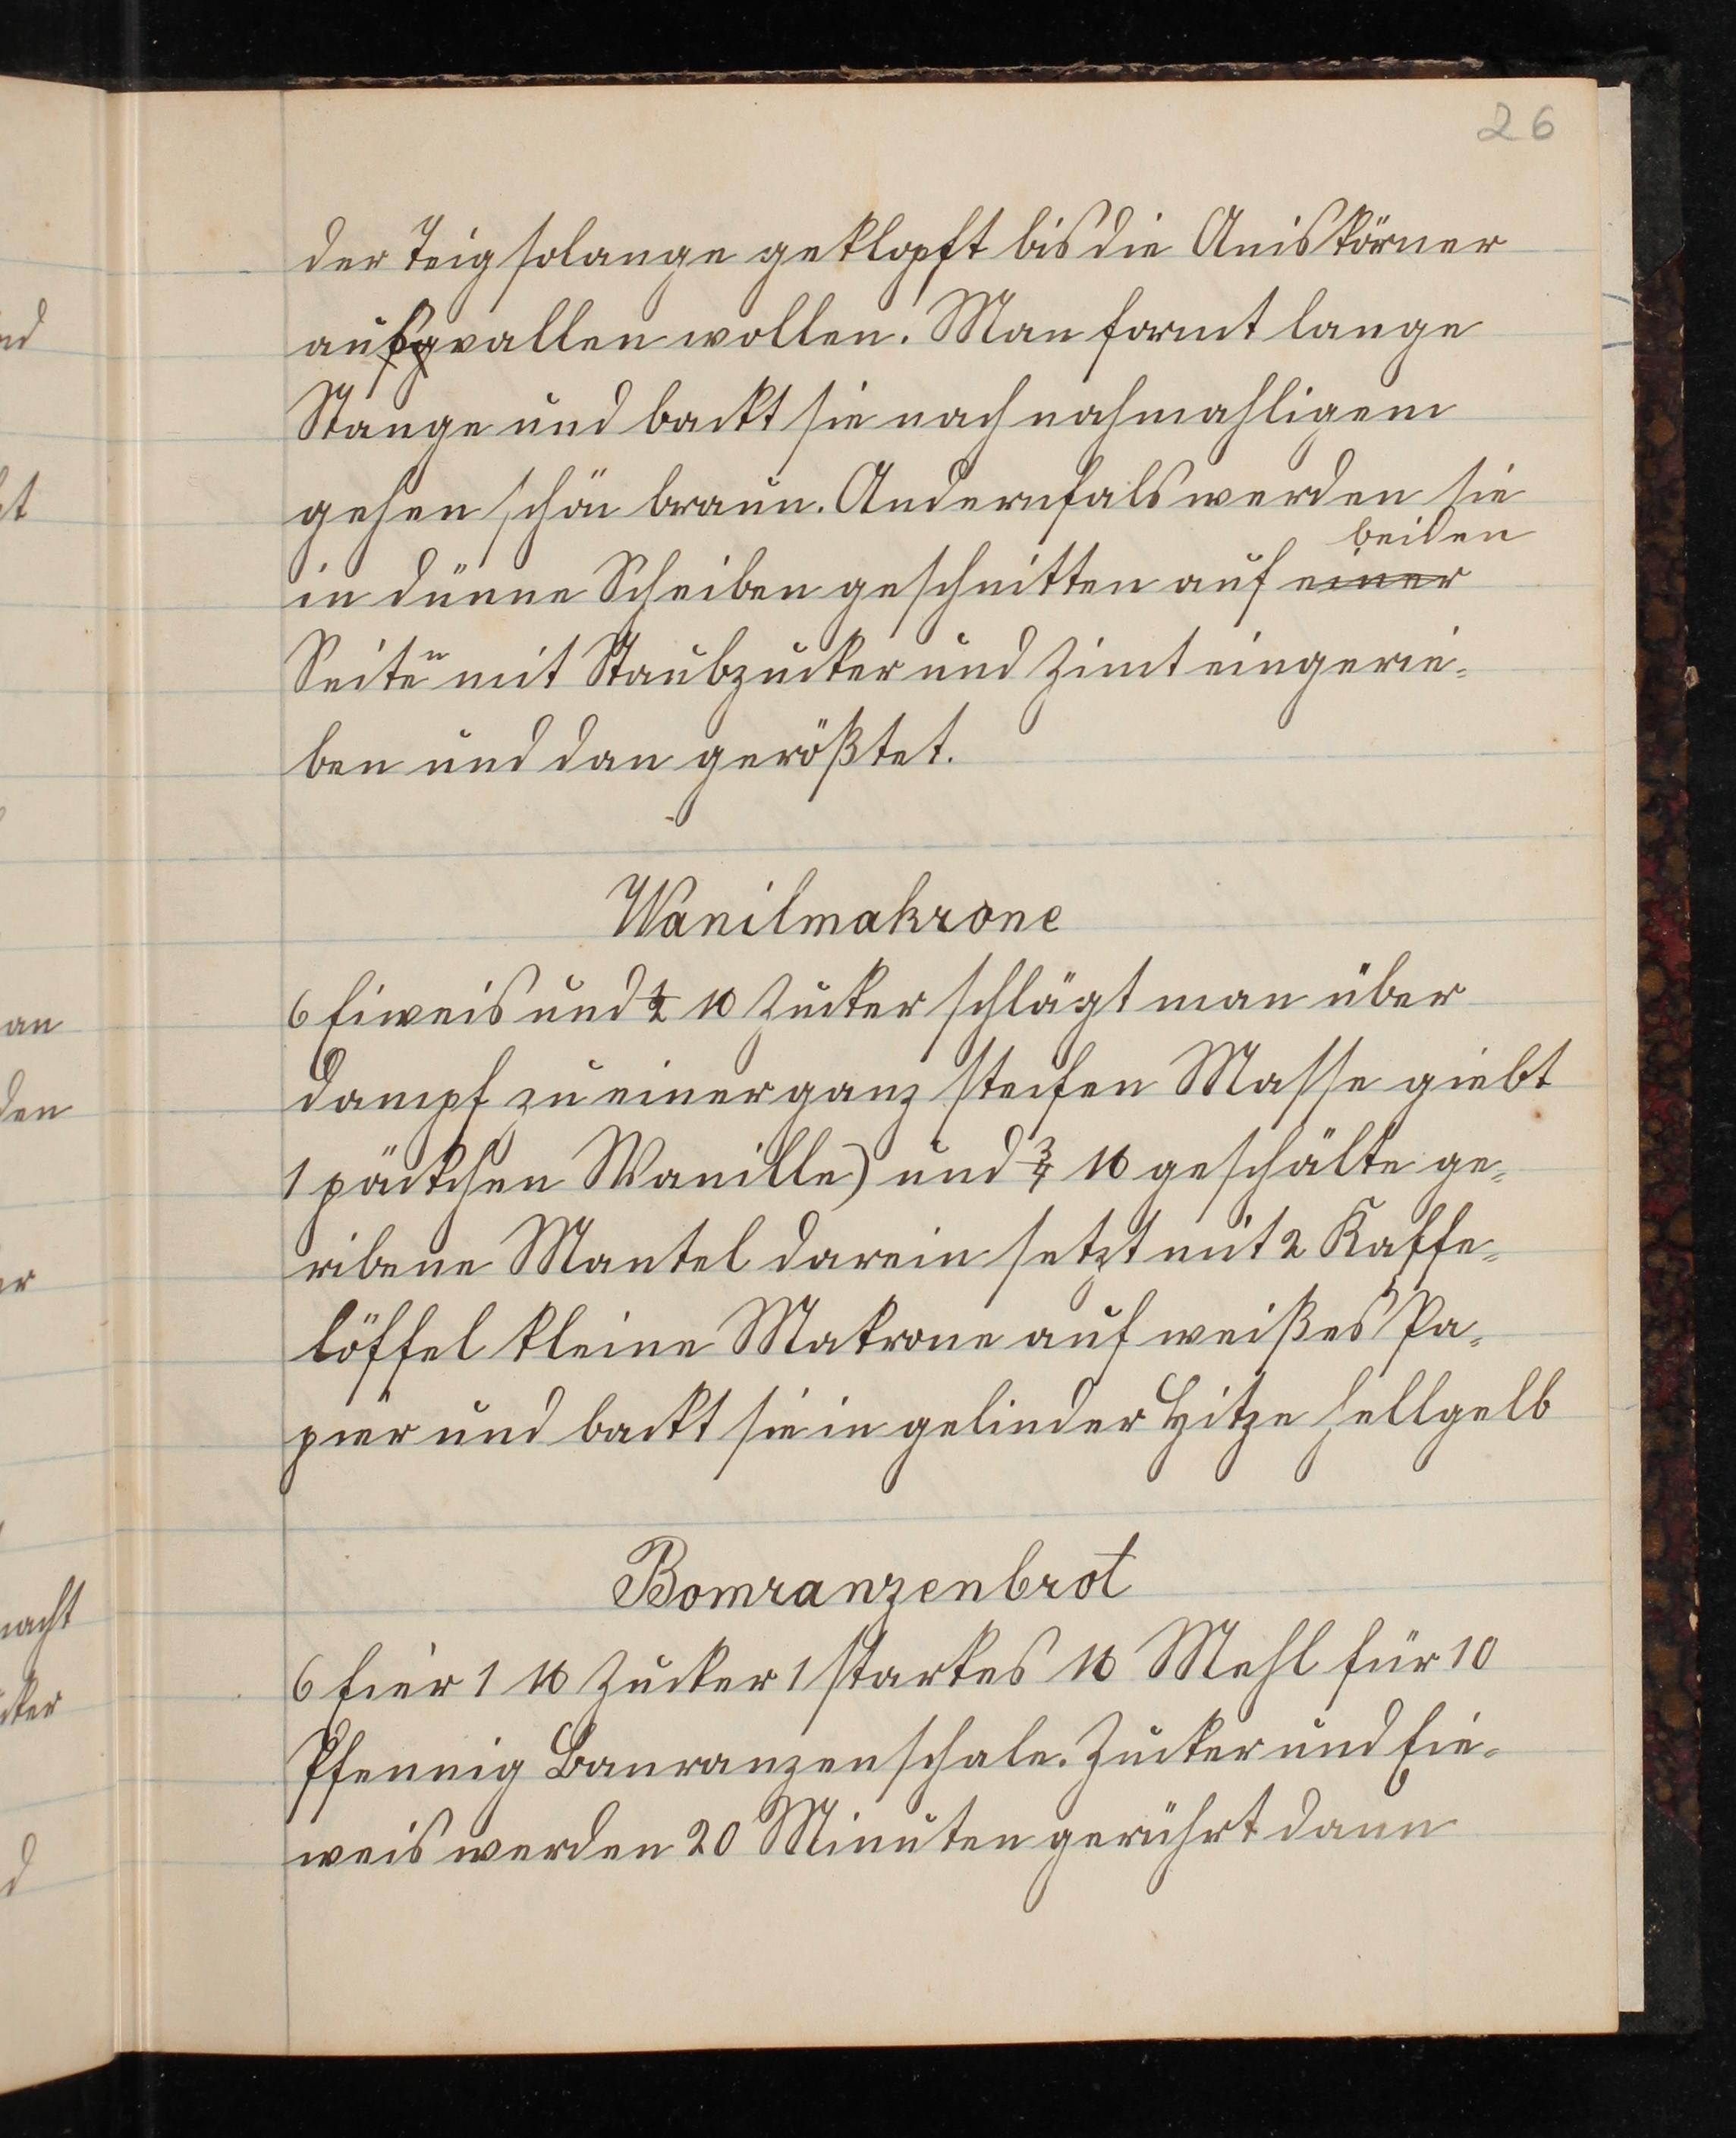 26
der Teig solange geklopft bis die Aniskörner
aufwallen wollen. Man formt lange
Stange und backt sie nach nahmahligem
gehen schön braun. Andernfals werden sie
beiden
in dünne Scheiben geschnitten auf einer
Seiten mit Staubzucker und Zimt eingerie-
ben und dan gerößtet.
Wanilmakrone
6 Eiweis und ½ ℔ Zucker schlägt man über
Dampf zu einer ganz steifen Masse giebt
1 päckchen Wanille) und ¾ ℔ geschälte ge-
ribene Mantel darein setzt mit 2 Kaffe-
löffel kleine Makrone auf weißes Pa-
pier und backt sie in gelinder Hitze hellgelb
Bomranzenbrot
6 Eier 1 ℔ Zucker 1 starkes ℔ Mehl für 10
Pfennig Banranzenschale. Zucker und Eie-
weis werden 20 Minuten gerührt dann